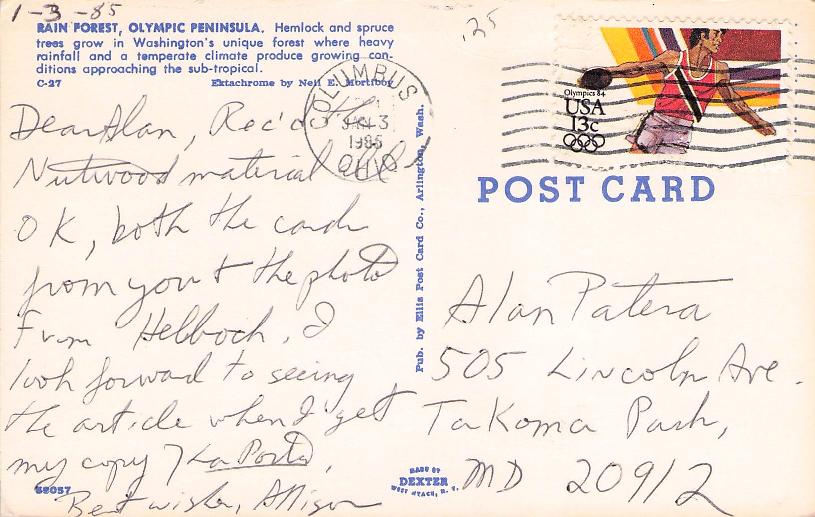 1-3-85
.25
RAIN FOREST, OLYMPIC PENINSULA. Hemlock and spruce
trees grow in Washington's unique forest where heavy
rainfall and a temperate climate produce growing con-
ditions approaching the sub-tropical.
C-27 Ektachrome by Nell E. Mortiboy
COLUMBUS
JAN 3
1985
OHIO
Olympics 84
USA
13c
POST CARD
Dear Alan, Rec'd the
Nutwood material all
OK, both the cards
from you & the photo
From Helbock. I
look forward to seeing
the article when I get
my copy of La Posta,
Best wishes, Allison
Pub. by Ellis Post Card Co., Arlington, Wash.
Alan Patera
505 Lincoln Ave.
Takoma Park,
MD 20912
MADE BY
DEXTER
WEST NYACK, N. Y.